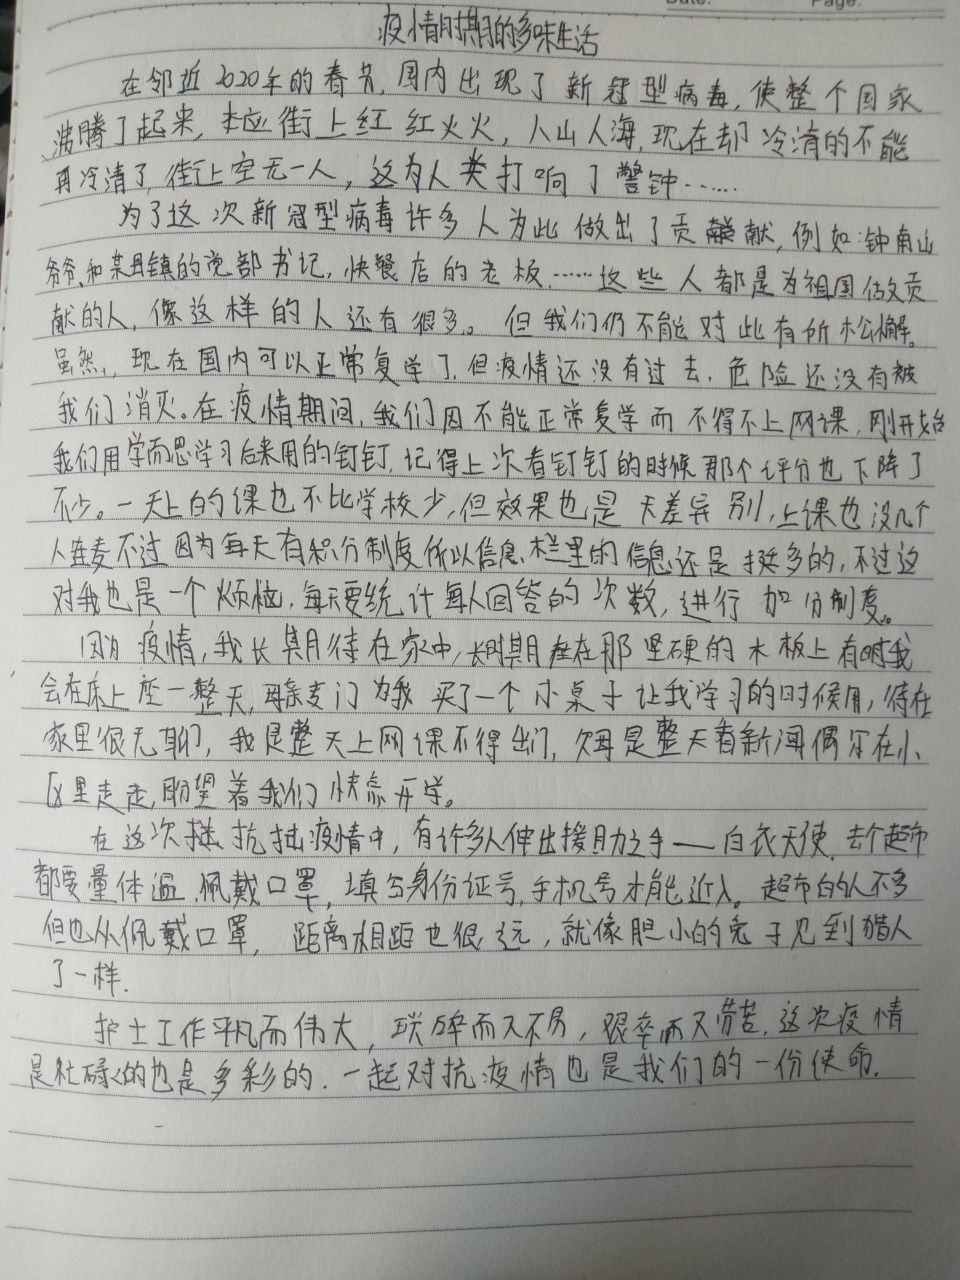 Date:    Page:
疫情时期的多味生活
在邻近2020年的春节,国内出现了新冠型病毒,使整个国家
沸腾了起来,本应街上红红火火,人山人海,现在却冷清的不能
再冷清了,街上空无一人,这为人类打响了警钟……
为了这次新冠型病毒许多人为此做出了贡献,例如:钟南山
爷爷和某县镇的党部书记,快餐店的老板……这些人都是为祖国做贡
献的人,像这样的人还有很多。但我们仍不能对此有所松懈。
虽然,现在国内可以正常复学了,但疫情还没有过去,危险还没有被
我们消灭。在疫情期间,我们因不能正常复学而不得不上网课,刚开始
我们用学而思学习后来用的钉钉,记得上次看钉钉的时候那个评分也下降了
不少。一天上的课也不比学校少,但效果也是天差异别,上课也没几个
人连麦不过因为每天有积分制度所以信息栏里的信息还是挺多的,不过这
对我也是一个烦恼,每天要统计每人回答的次数,进行加分制度。
因为疫情,我长期待在家中,长时期座在那坚硬的木板上有时我
会在床上座一整天,母亲专门为我买了一个小桌子让我学习的时候用,待在
家里很无聊,我是整天上网课不得出门,父母是整天看新闻偶尔在小
区里走走,期望着我们快点开学。
在这次抗疫情中,有许多人伸出援助之手——白衣天使,去个超市
都要量体温,佩戴口罩,填写身份证号,手机号才能近入。超市的人不多
但也从佩戴口罩,距离相距也很远,就像胆小的兔子见到猎人
了一样.
护士工作平凡而伟大,琐碎而又不易,艰辛而又劳苦,这次疫情
是的也是多彩的.一起对抗疫情也是我们的一份使命.